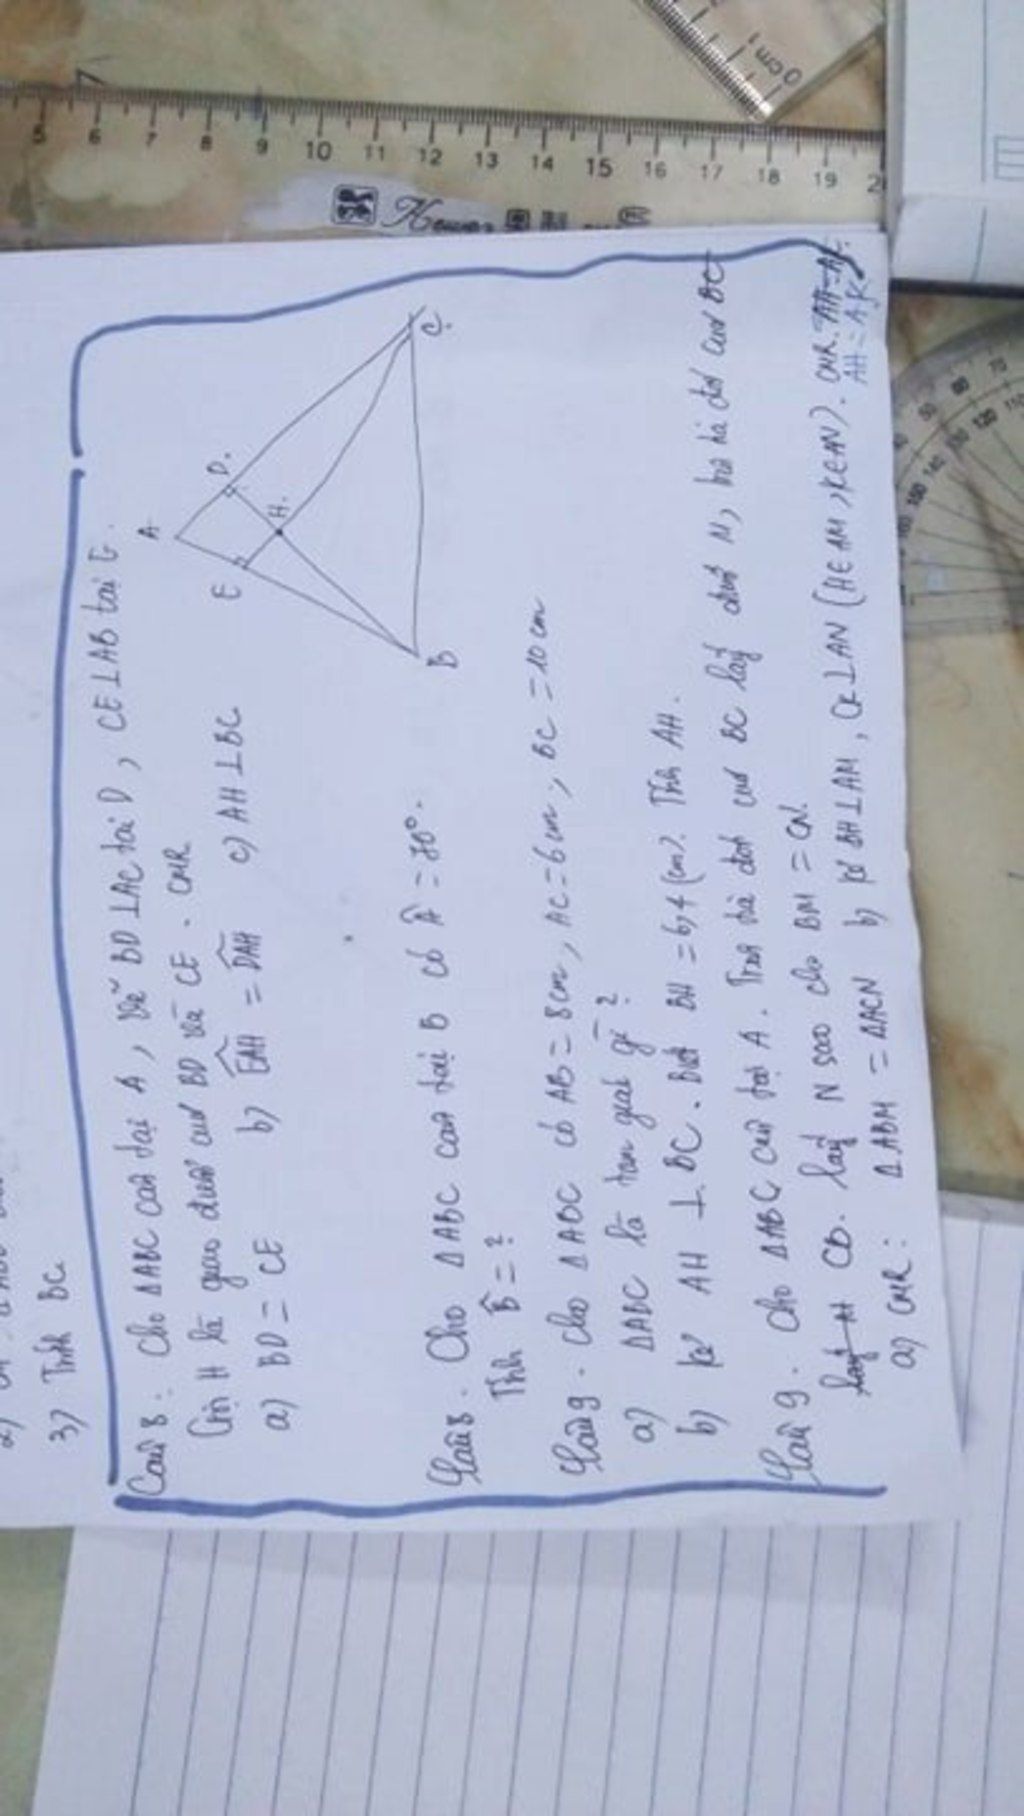 3) Tính BC
Câu 8: Cho ΔABC cân tại A, vẽ BD ⊥ AC tại D, CE ⊥ AB tại E.
Gọi H là giao điểm của BD và CE. CMR
a) BD = CE b) EAH = DAH c) AH ⊥ BC
A
E
D.
H.
B
C.
Câu 8. Cho ΔABC cân tại B có Â = 70°.
Tính B̂ = ?
Câu 9. Cho ΔABC có AB = 8cm, AC = 6cm, BC = 10cm
a) ΔABC là tam giác gì?
b) kẻ AH ⊥ BC. Biết BH = 6,4 (cm). Tính AH.
Câu 9. Cho ΔABC cân tại A. Trên tia đối của BC lấy điểm M, trên tia đối của
CB. lấy N sao cho BM = CN.
a) CMR: ΔABM = ΔACN b) kẻ BH ⊥ AM, CK ⊥ AN (H∈AM, K∈AN). CMR.
AH = AK
5 6 7 8 9 10 11 12 13 14 15 16 17 18 19
0cm 1